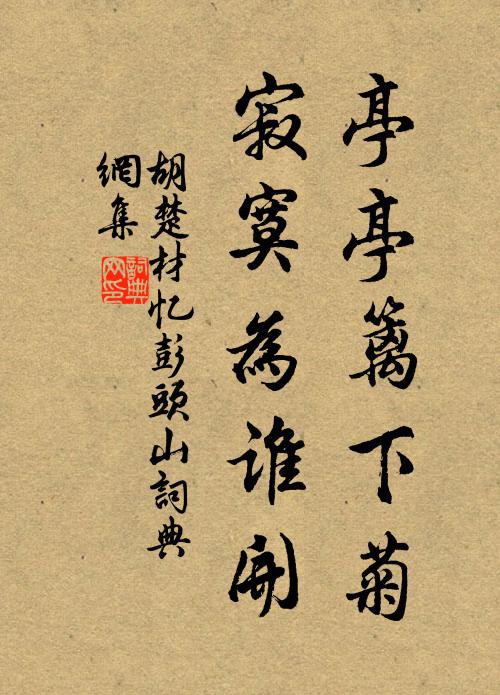 亭亭籬下菊
寂寞為誰開
胡楚材忆彭頭山詞典
網集
詞典網印